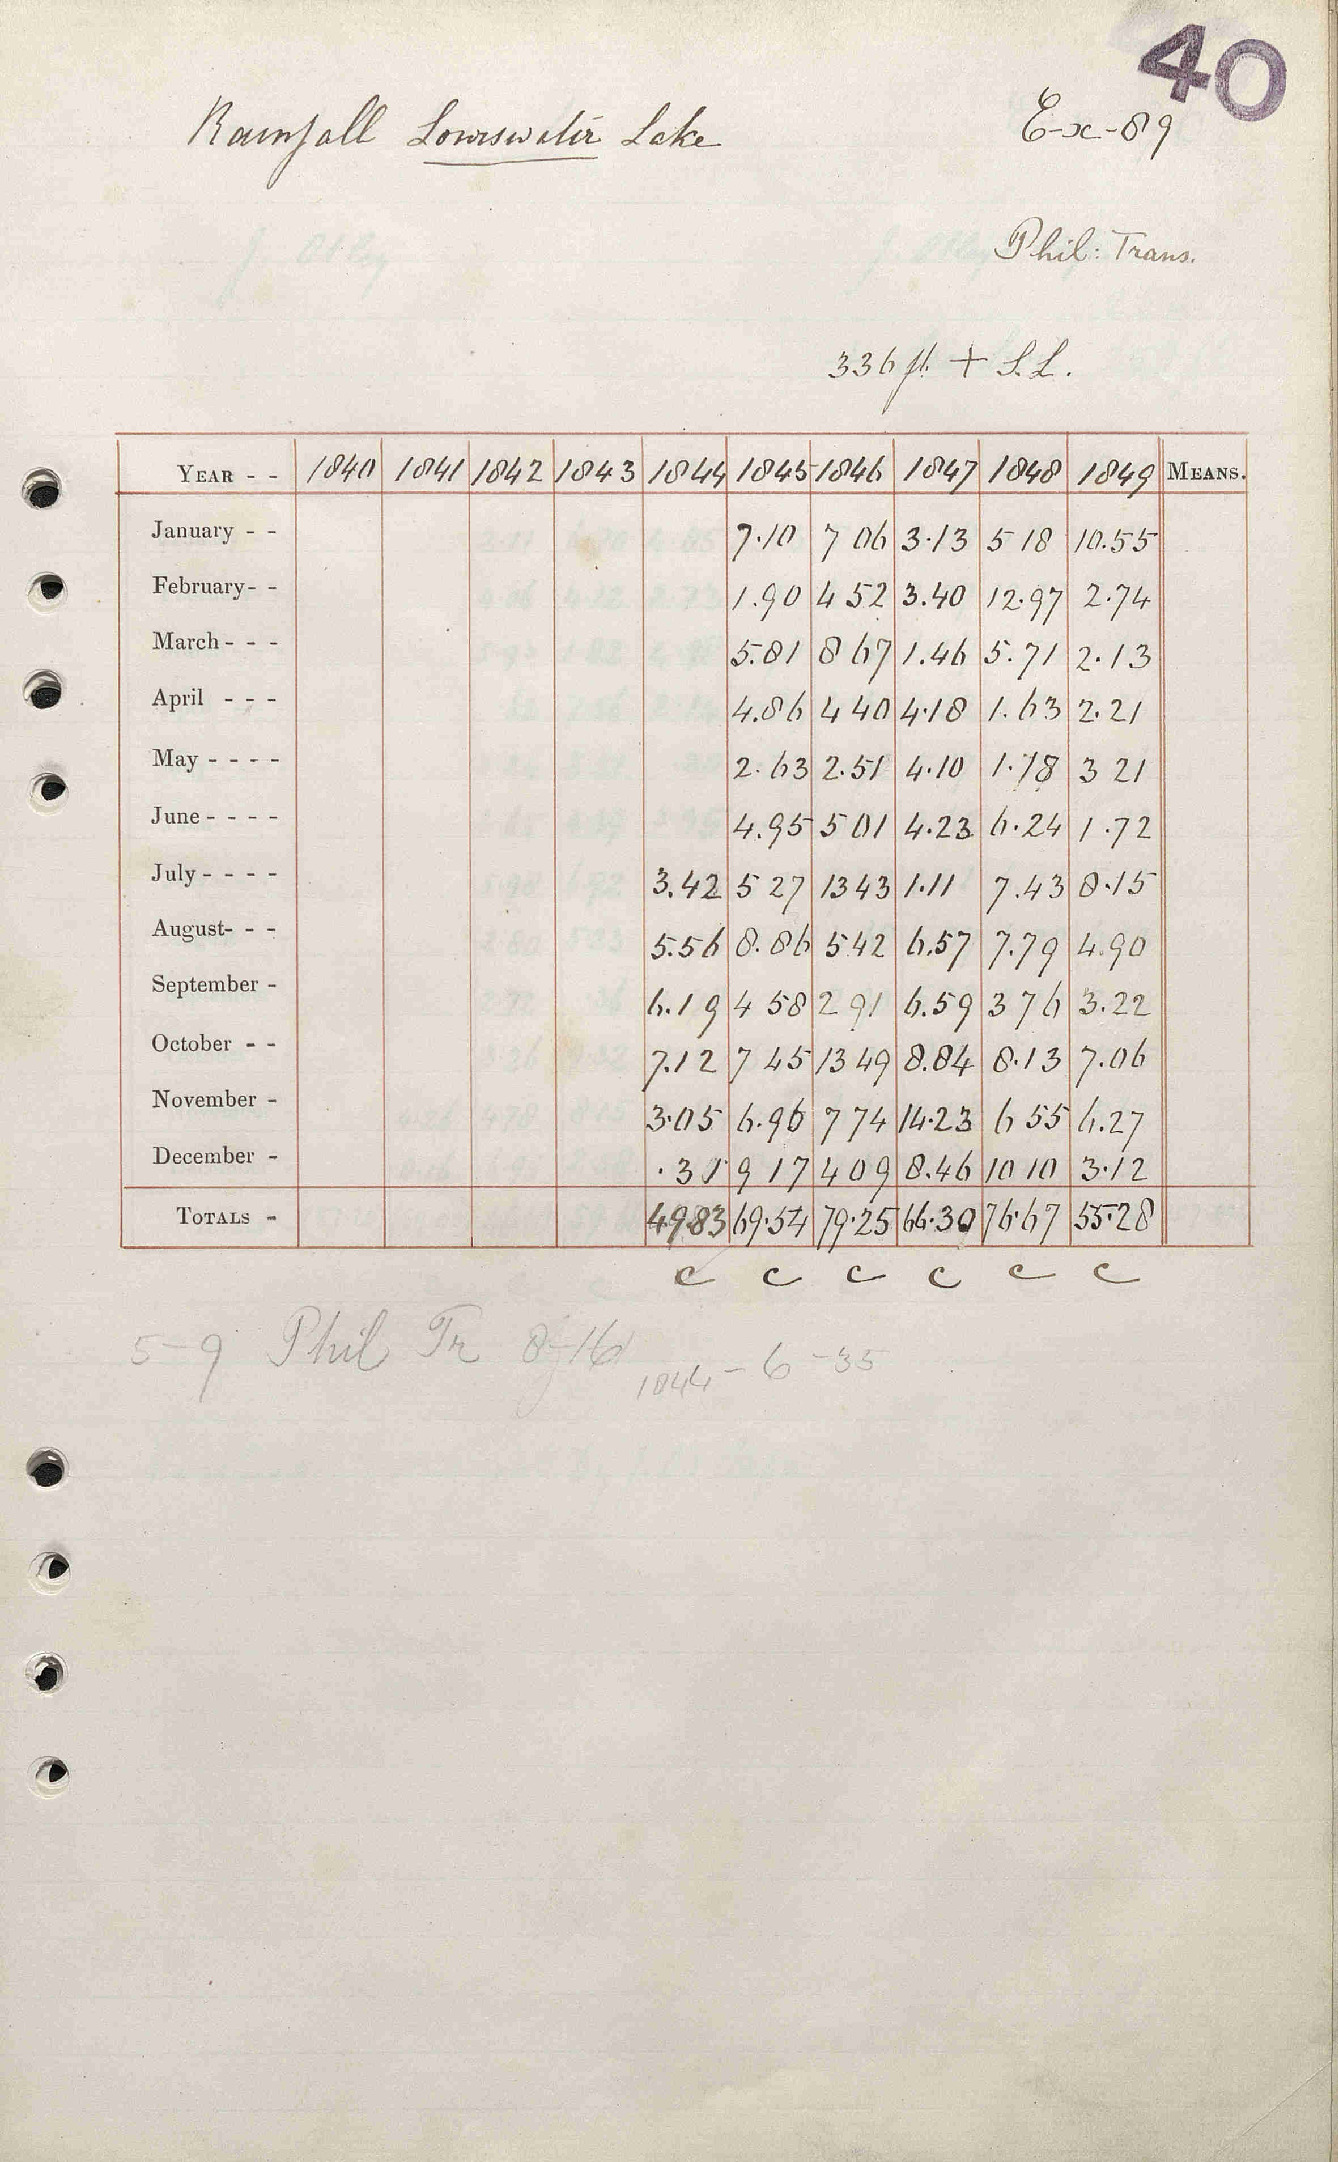 40
Rainfall Lowswater Lake Ex-89
Phil: Trans.
336 ft + S.L.
YEAR - - 1840 1841 1842 1843 1844 1845 1846 1847 1848 1849 MEANS.
January - - 7.10 7 06 3.13 5 18 10.55
February - - 1.90 4 52 3.40 12.97 2.74
March - - - 5.81 8 67 1.46 5.71 2.13
April - - - 4.86 4 40 4.18 1.63 2.21
May - - - - 2.63 2.51 4.10 1.78 3 21
June - - - - 4.95 5 01 4.23 6.24 1.72
July - - - - 3.42 5 27 13 43 1.11 7.43 8.15
August - - - 5.56 8.86 5 42 6.57 7.79 4.90
September - 6.19 4 58 2 91 6.59 3 76 3.22
October - - 7.12 7 45 13 49 8.84 8.13 7.06
November - 3.05 6.96 7 74 14.23 6 55 6.27
December - 9 17 4 09 8.46 10 10 3.12
TOTALS - 49.83 69.54 79.25 66.30 76.67 55.28
c c c c c c
5-9 Phil Tr
1844 - 6 - 35